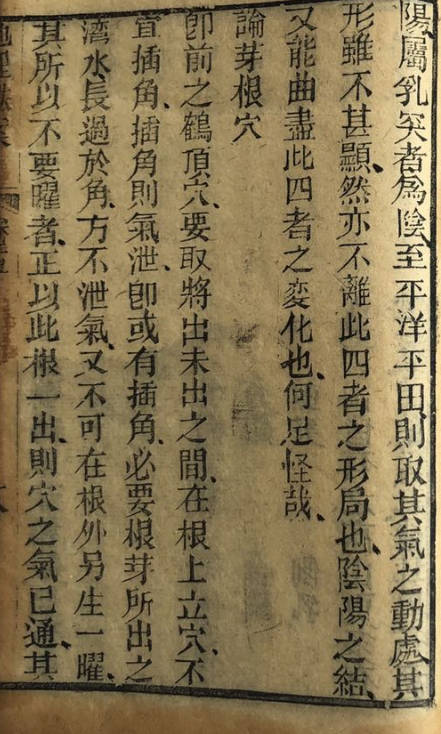 陽屬乳突者爲陰至平洋平田則取其氣之動處其
形雖不甚顯然亦不離此四者之形局也陰陽之結
又能曲盡此四者之变化也何足怪哉
論芽根穴
卽前之鶴頂穴要取將出未出之間在根上立穴不
宜插角插角則氣泄卽或有插角必要根芽所出之
灣水長過於角方不泄氣又不可在根外另生一曜
其所以不要曜者正以此根一出則穴之氣已通其